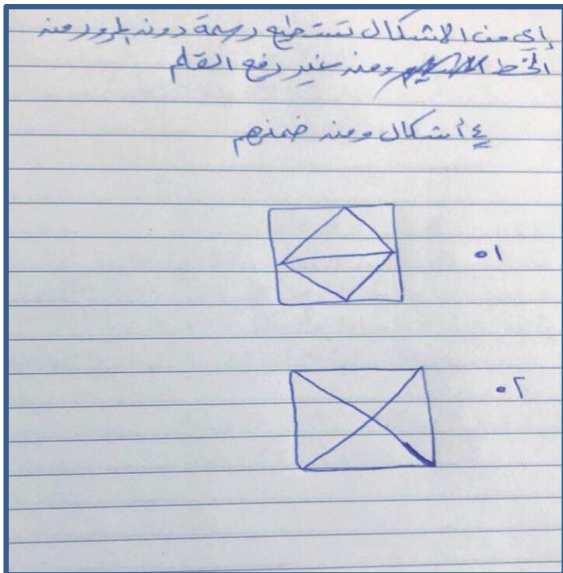 إي من الاشكال تستطيع رسمة دون المرور من
الخط ومن غير رفع القلم
٤ أشكال ومن ضمنهم
٠١
٠٢